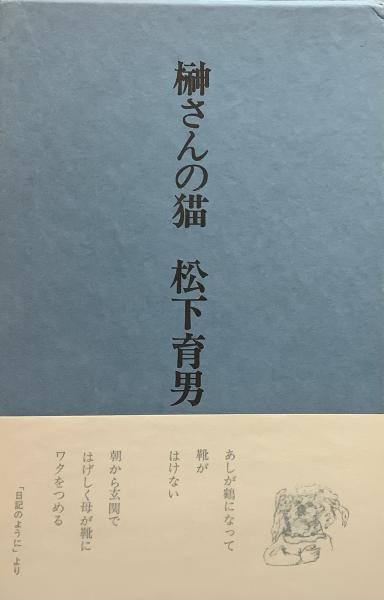 榊さんの猫　松下育男
あしが鶴になって
靴が
はけない
朝から玄関で
はげしく母が靴に
ワタをつめる
「日記のように」より